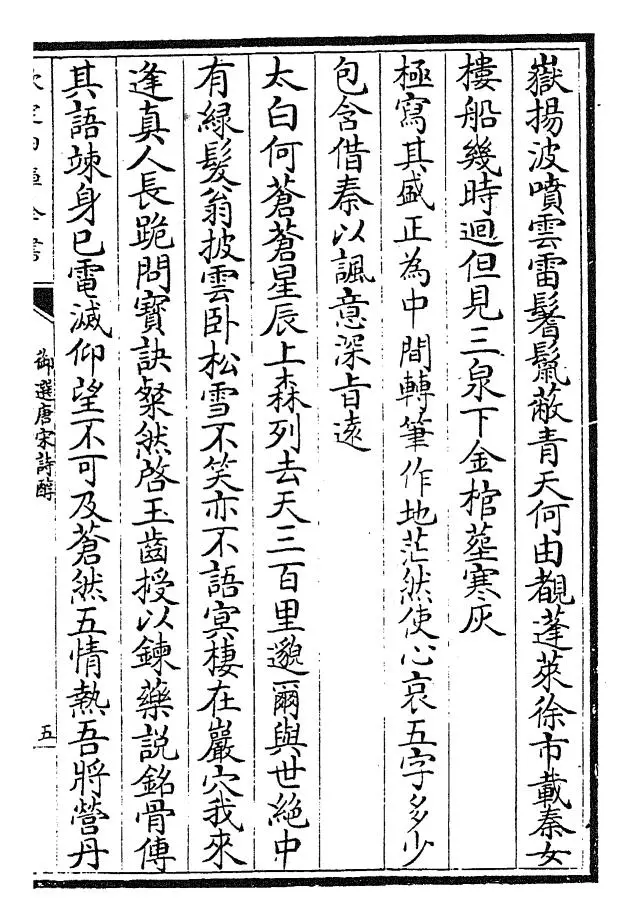 嶽揚波噴雲雷鬐鬛蔽青天何由覩蓬萊徐市載秦女
樓船幾時迴但見三泉下金棺塟寒灰
極寫其盛正為中間轉筆作地茫然使心哀五字多少
包含借秦以諷意深旨逺
太白何蒼蒼星辰上森列去天三百里邈爾與世絶中
有緑髪翁披雲卧松雪不笑亦不語冥棲在巖穴我來
逢真人長跪問寶訣粲然啓玉齒授以鍊藥說銘骨傳
其語竦身已電滅仰望不可及蒼然五情熱吾將營丹
御選唐宋詩醇
五